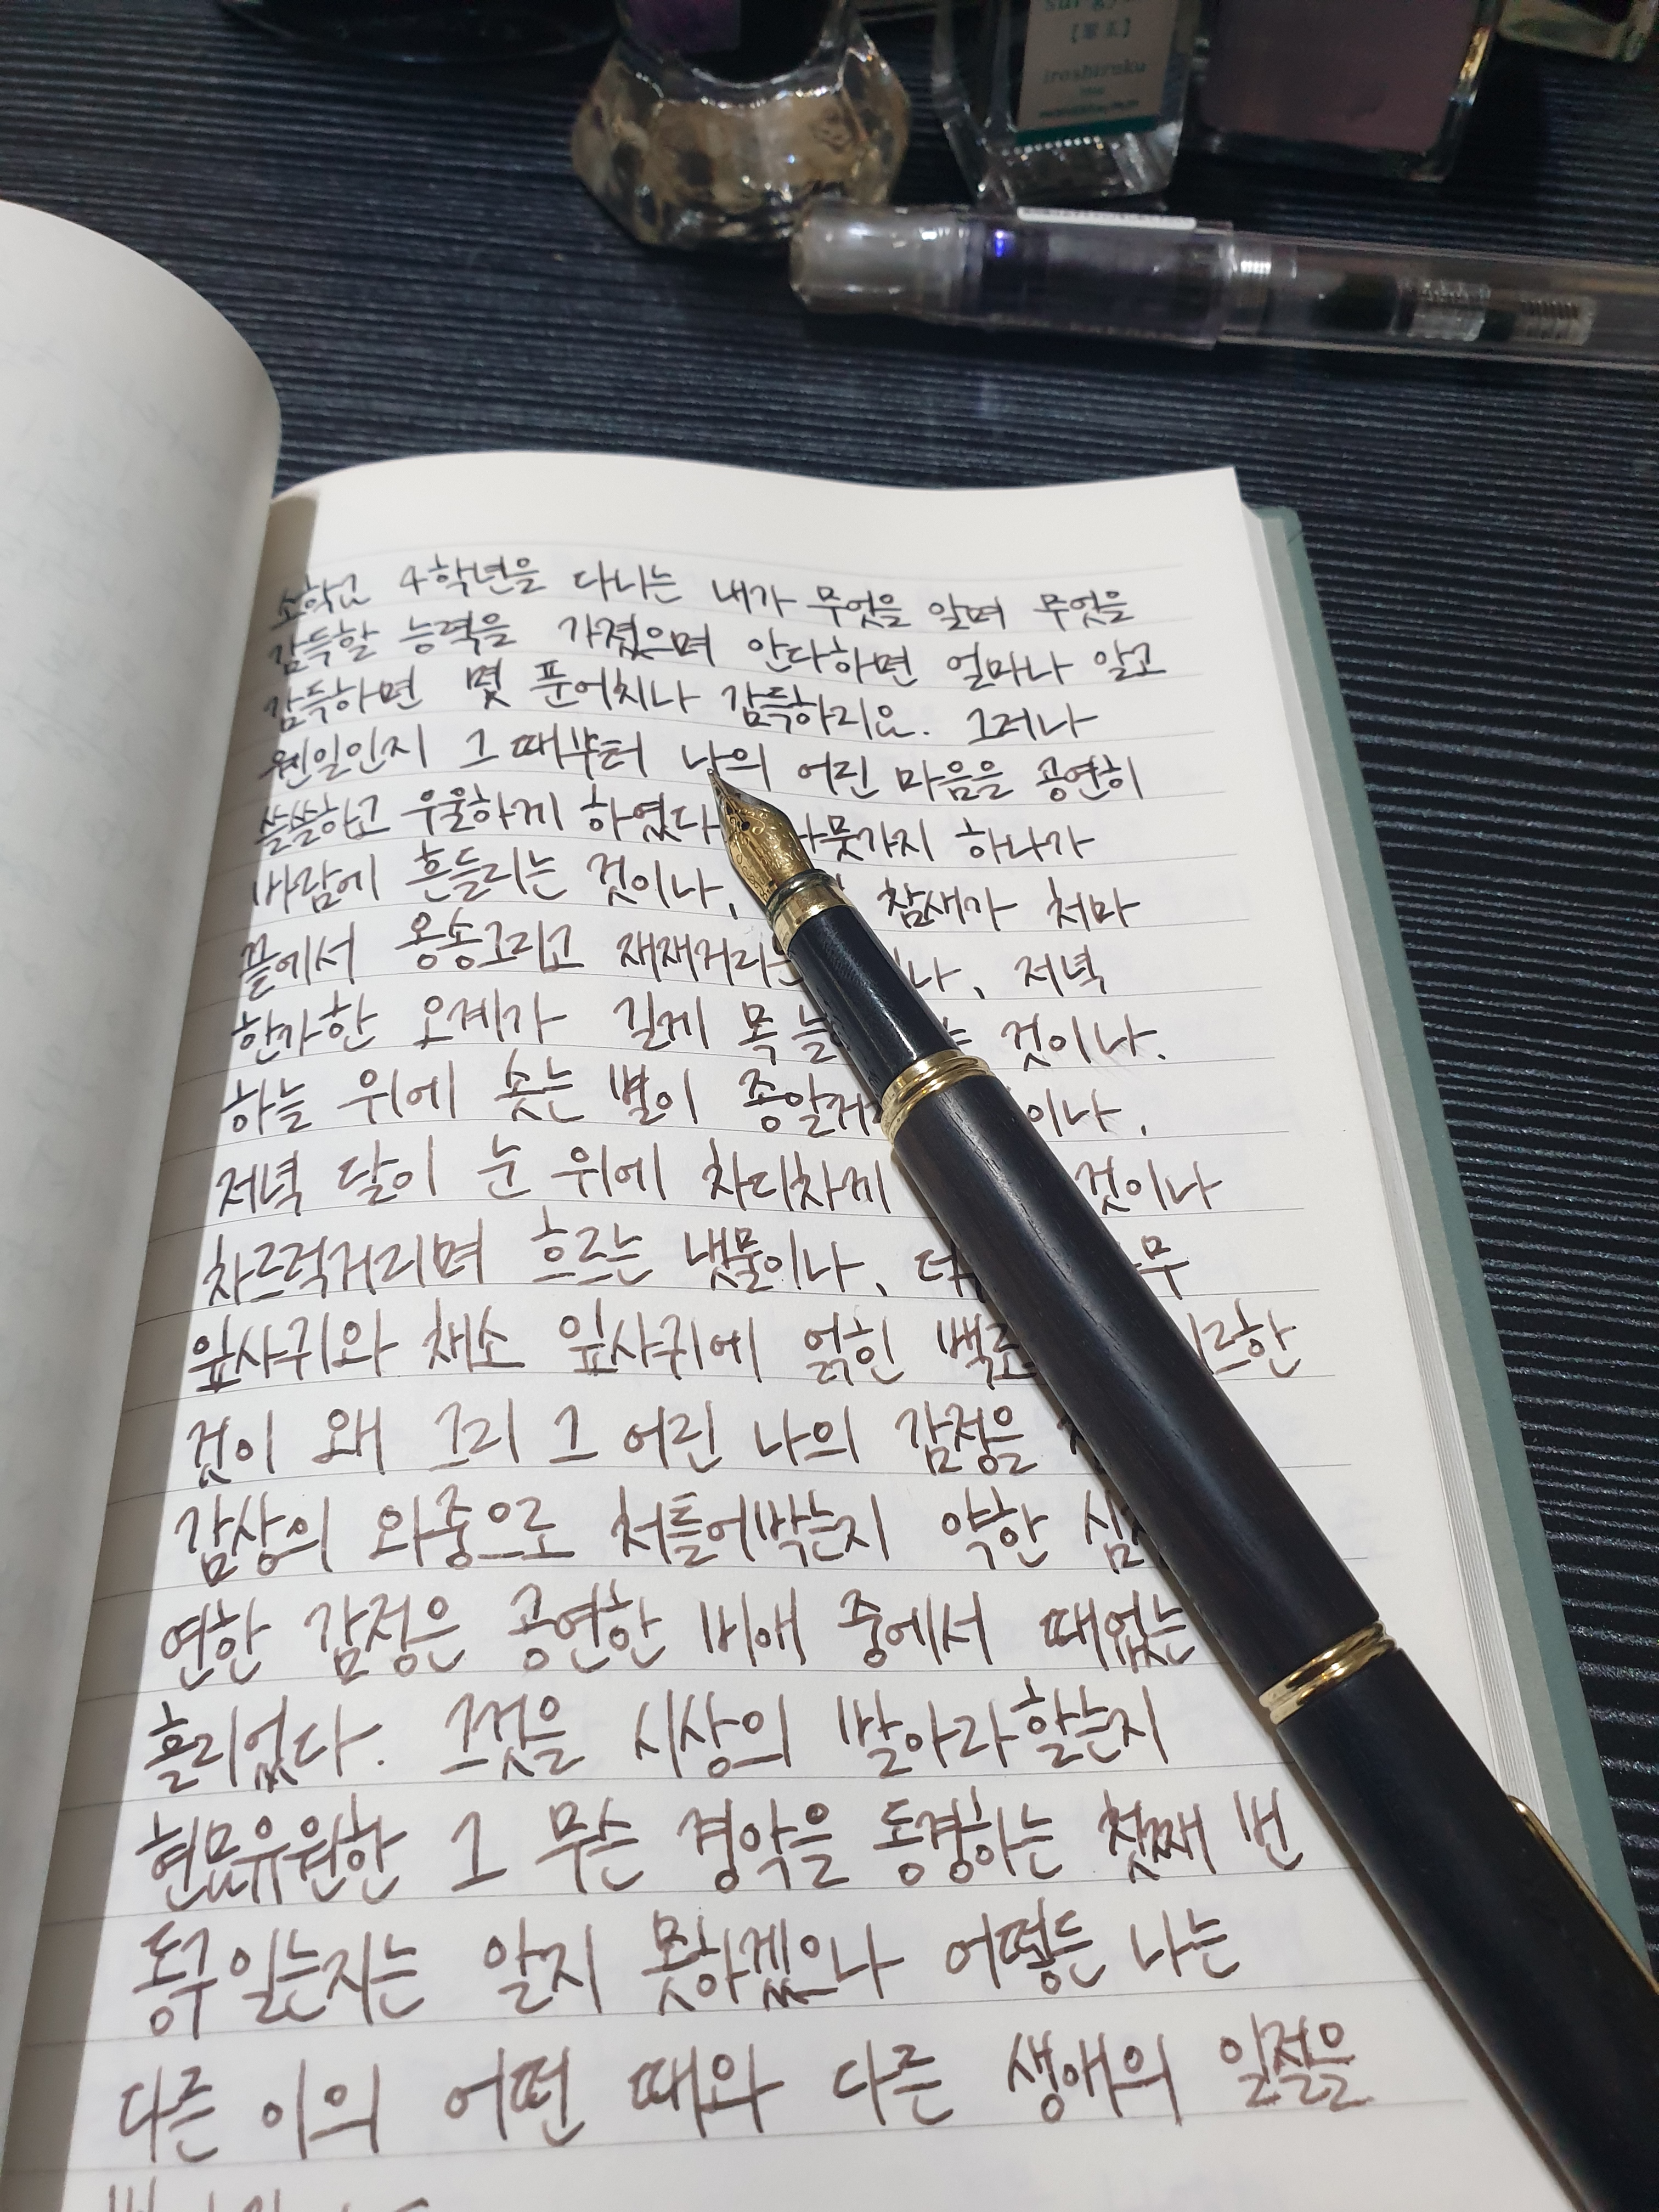 sui-gyo
iroshizuku
소학교 4학년을 다니는 내가 무엇을 알며 무엇을
감득할 능력을 가졌으며 안다하면 얼마나 알고
감득하면 몇 푼어치나 감득하리요. 그러나
웬일인지 그 때부터 나의 어린 마음을 공연히
쓸쓸하고 우울하게 하였다 나뭇가지 하나가
바람에 흔들리는 것이나, 참새가 처마
끝에서 옹송그리고 재재거리는 이나, 저녁
한가한 오계가 길게 목 늘 는 것이나.
하늘 위에 솟는 별이 종알거 이나,
저녁 달이 눈 위에 차디차게 것이나
차르럭거리며 흐르는 냇물이나, 더 무
잎사귀와 채소 잎사귀에 얽힌 백로 르한
것이 왜 그리 그 어린 나의 감정을
감상의 와중으로 처틀어박는지 약한 심
연한 감정은 공연한 비애 중에서 때없는
흘리었다. 그것을 시상의 발아라 할는지
현묘유원한 그 무슨 경악을 동경하는 첫째 번
동구일는지는 알지 못하겠으나 어떻든 나는
다른 이의 어떤 때와 다른 생애의 일절을